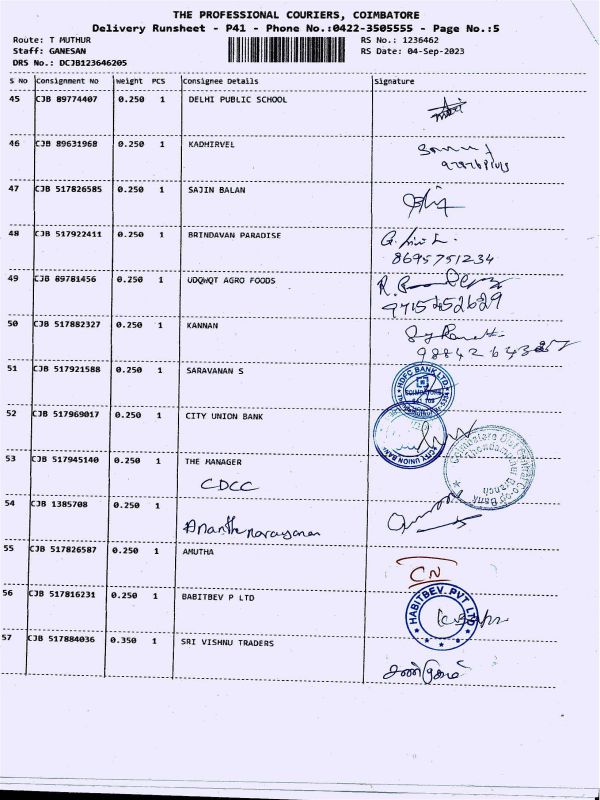 THE PROFESSIONAL COURIERS, COIMBATORE
Delivery Runsheet - P41 - Phone No.:0422-3505555 - Page No.:5
Route: T MUTHUR RS No.: 1236462
Staff: GANESAN RS Date: 04-Sep-2023
DRS No.: DCJB123646205
S No Consignment No Weight PCS Consignee Details Signature
45 CJB 89774407 0.250 1 DELHI PUBLIC SCHOOL
46 CJB 89631968 0.250 1 KADHIRVEL
47 CJB 517826585 0.250 1 SAJIN BALAN
48 CJB 517922411 0.250 1 BRINDAVAN PARADISE
8695751234
49 CJB 89781456 0.250 1 UDQWQT AGRO FOODS
9715452629
50 CJB 517882327 0.250 1 KANNAN
51 CJB 517921588 0.250 1 SARAVANAN S
HDFC BANK LTD.
COIMBATORE
52 CJB 517969017 0.250 1 CITY UNION BANK
CITY UNION BANK
53 CJB 517945140 0.250 1 THE MANAGER
CDCC
Coimbatore Dist Central Co-op Bank
Branch
54 CJB 1385708 0.250 1
Ananthanarayanan
55 CJB 517826587 0.250 1 AMUTHA
CN
56 CJB 517816231 0.250 1 BABITBEV P LTD
HABITBEV PVT LTD
57 CJB 517884036 0.350 1 SRI VISHNU TRADERS